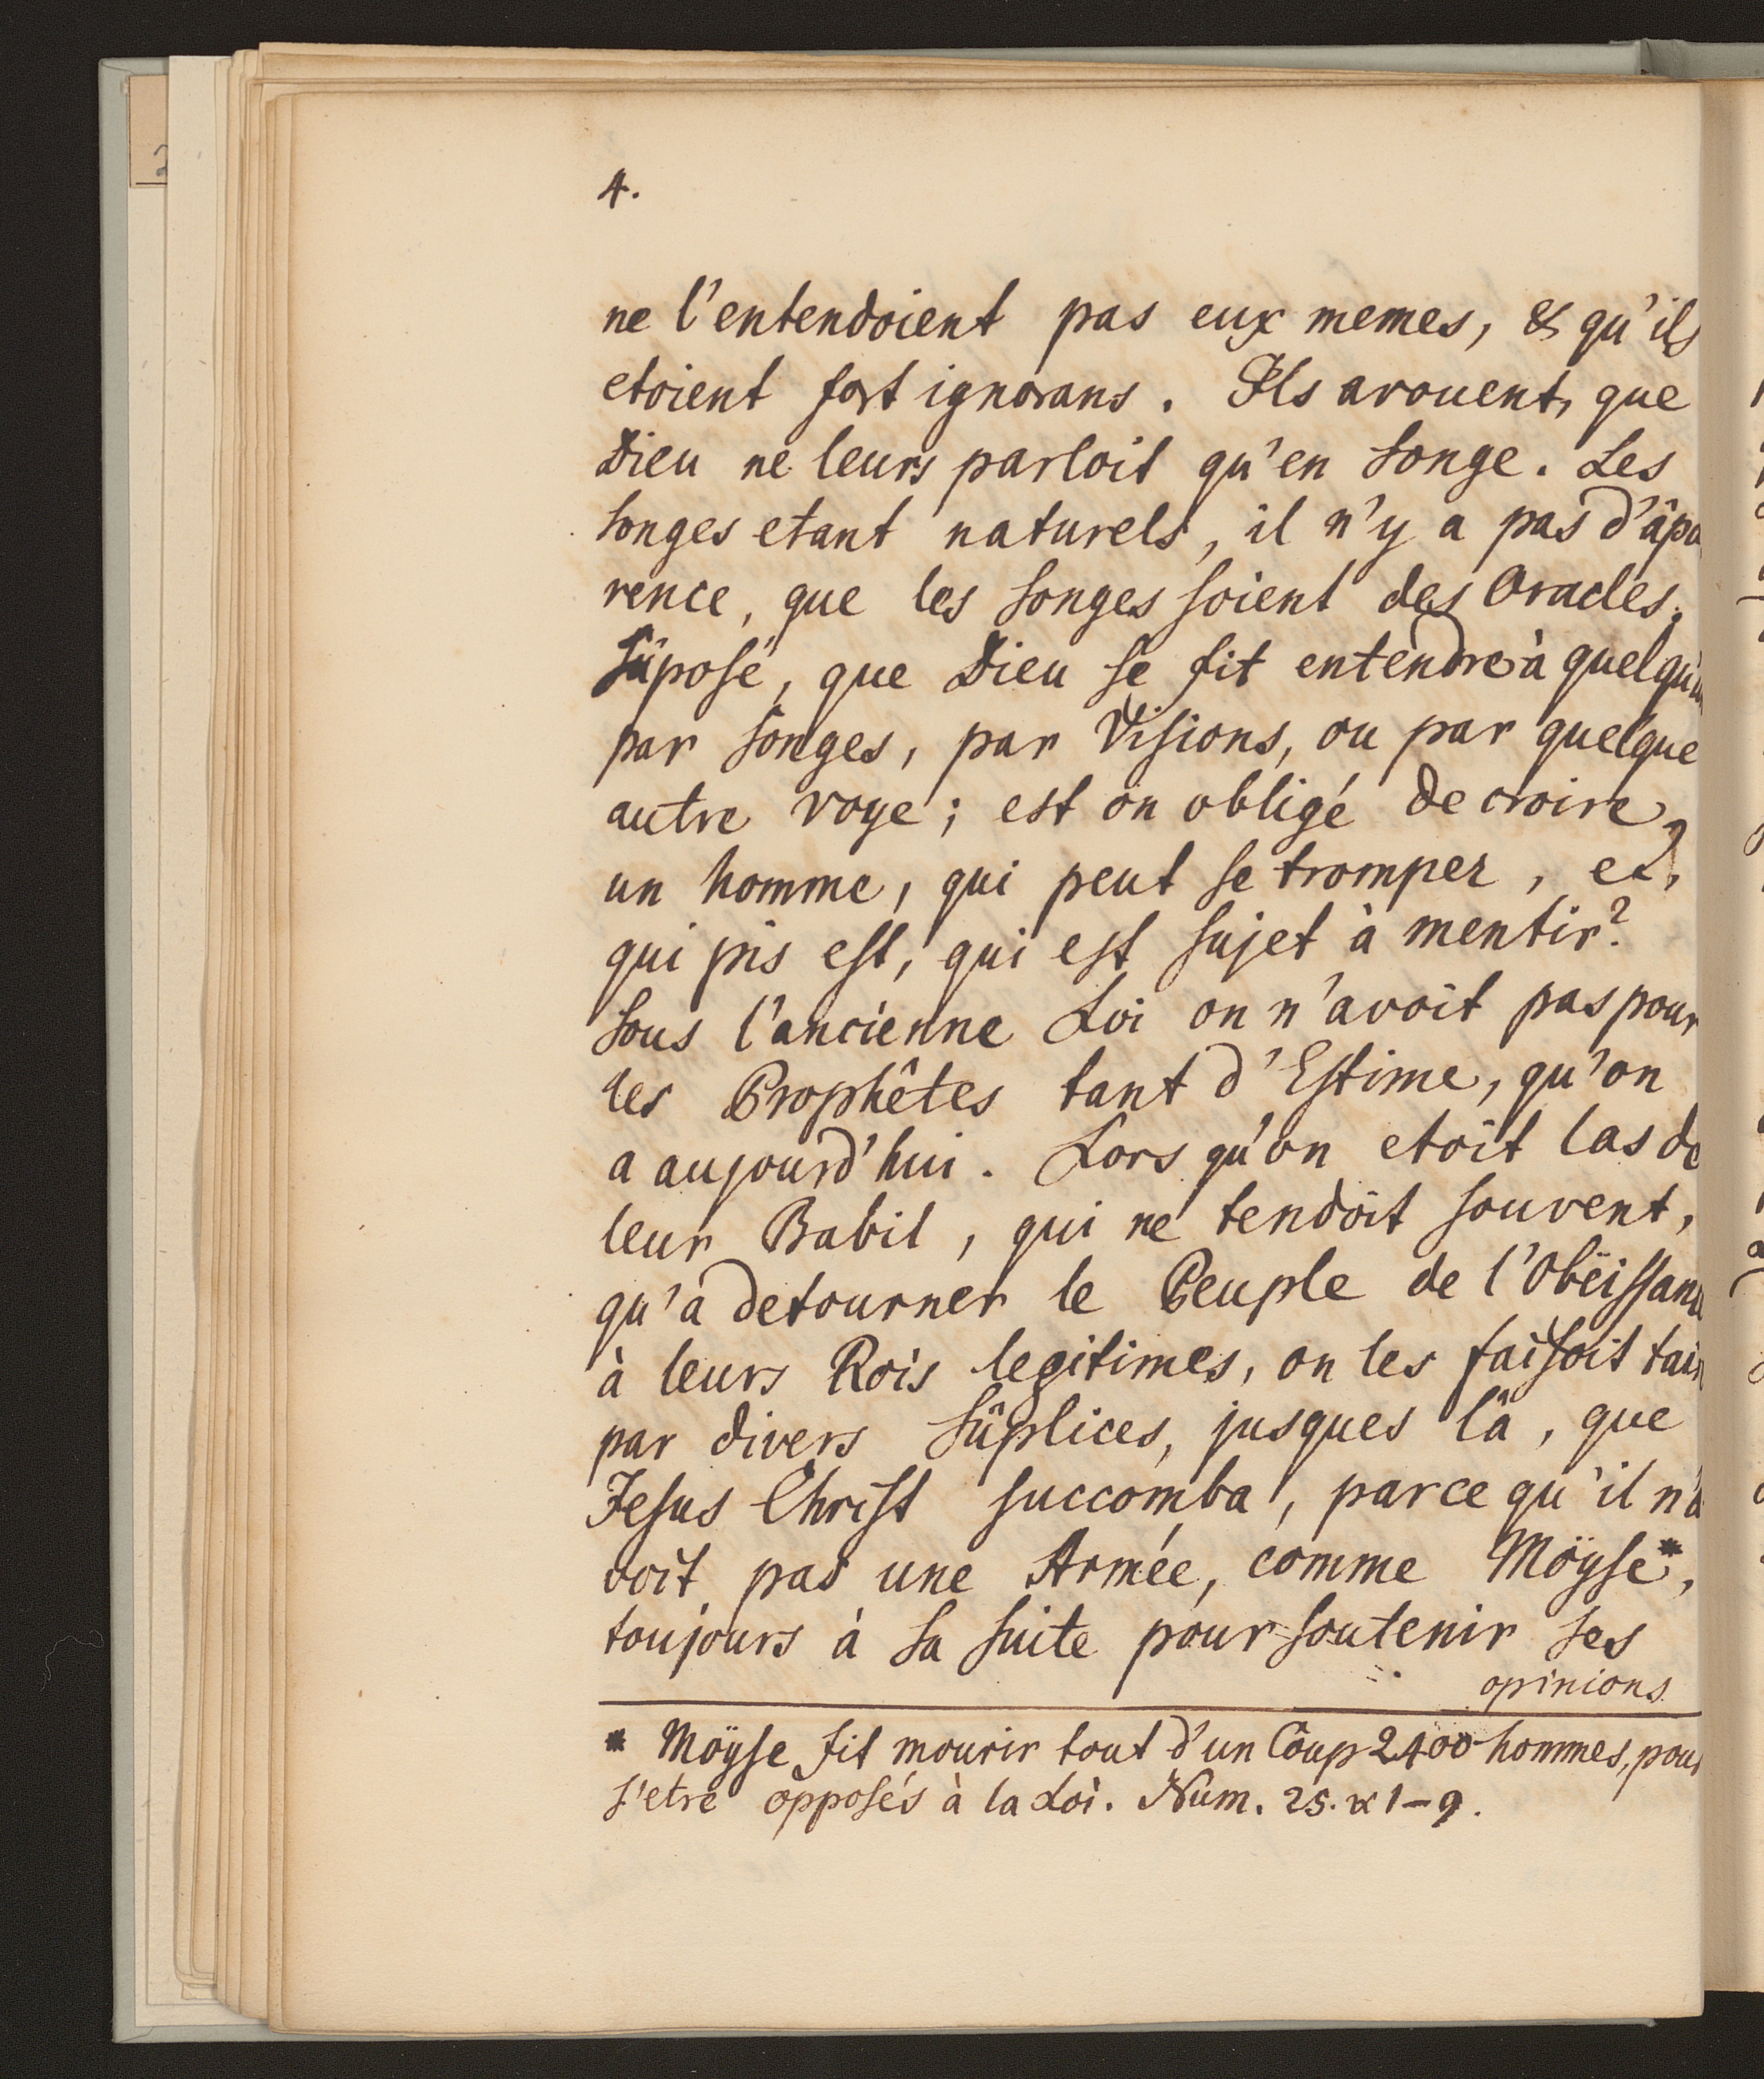 4.
ne l'entendoient pas eux memes, & qu'ils
etoient fort ignorans. Ils avouent, que
Dieu ne leurs parloit qu'en songe. Les
songes etant naturels, il n'y a pas d'âpa
rence, que les songes soient des Oracles.
Sûposé, que Dieu se fit entendre à quelqu'un
par songes, par Visions, ou par quelque
autre voye; est on obligé de croire
un homme, qui peut se tromper, et,
qui pis est, qui est sujet à mentir?
Sous l'ancienne Loi on n'avoit pas pour
les Prophêtes tant d'Estime, qu'on
a aujourd'hui. Lors qu'on etoit las de
leur Babil, qui ne tendoit souvent,
qu'à detourner le Peuple de l'Obëissan
à leurs Rois legitimes, on les faisoit tair
par divers Sûplices, jusques là, que
Jesus Christ succomba, parce qu'il n'a
voit pas une Armée, comme Möyse*,
toujours à sa suite pour soutenir ses
opinions
* Möyse fit mourir tout d'un Coup 2400 hommes, pour
s'etre opposés à la Loi. Num. 25. v 1-9.
2